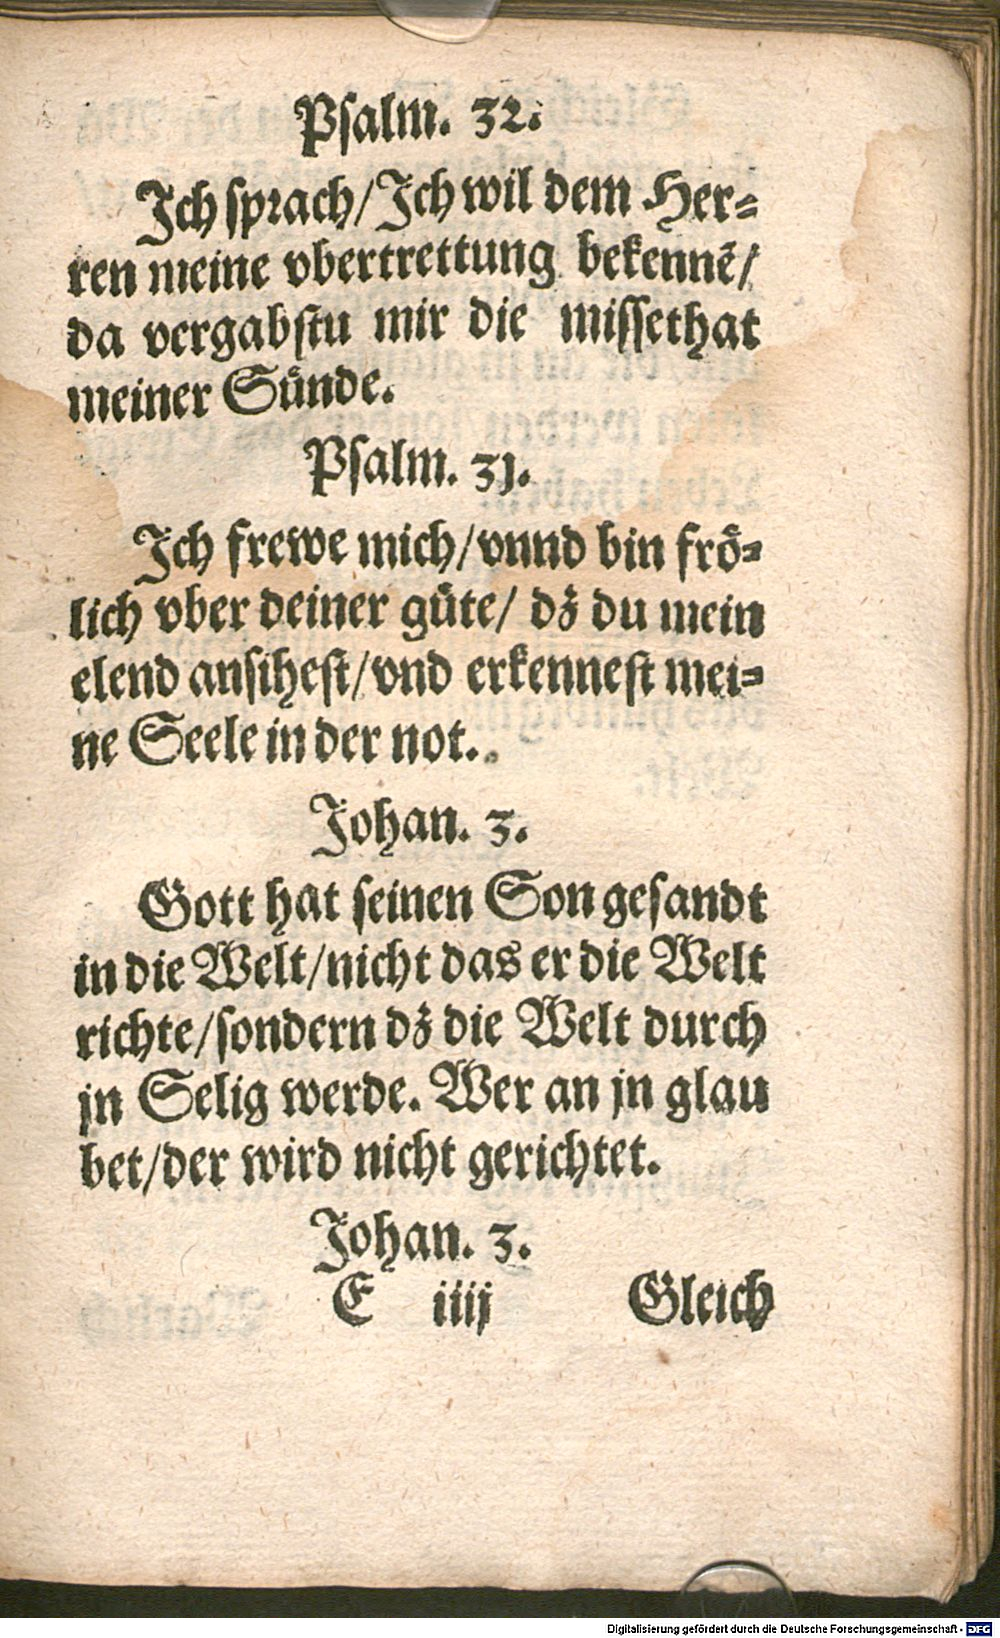 Psalm. 32.
Ich sprach/Ich wil dem Her⸗
ren meine vbertrettung bekennẽ/
da vergabstu mir die missethat
meiner Sünde.
Psalm. 31.
Ich frewe mich/vnnd bin frö⸗
lich vber deiner güte/ dz du mein
elend ansihest/vnd erkennest mei⸗
ne Seele in der not.
Johan. 3.
Gott hat seinen Son gesandt
in die Welt/nicht das er die Welt
richte/sondern dz die Welt durch
jn Selig werde. Wer an jn glau
bet/der wird nicht gerichtet.
Johan. 3.
E iiij Gleich
Digitalisierung gefördert durch die Deutsche Forschungsgemeinschaft - DFG